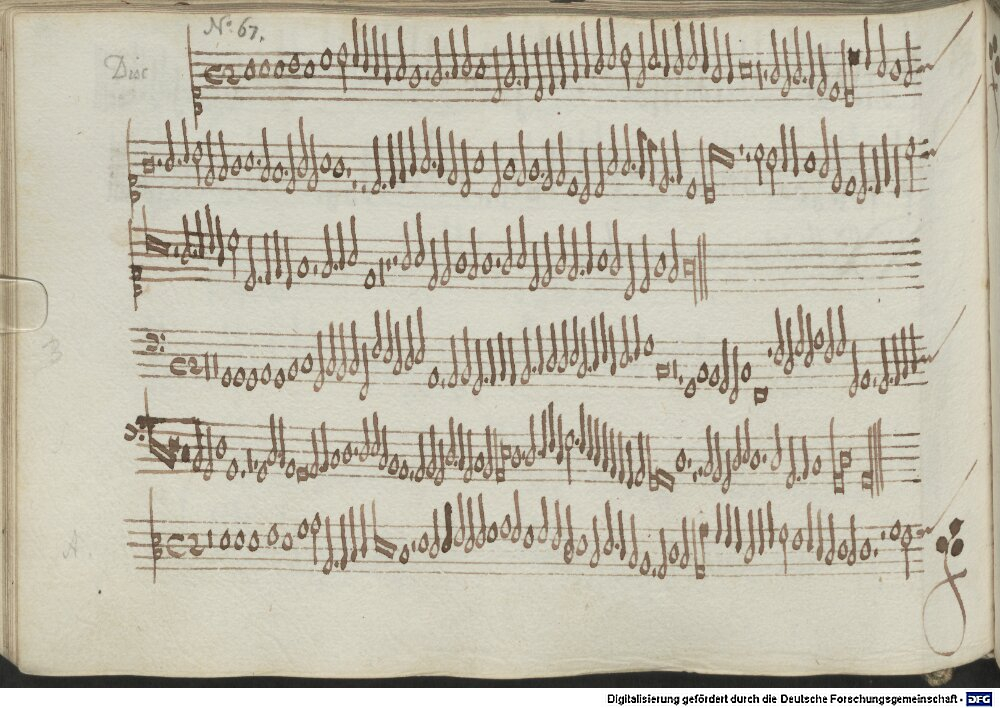 No. 67.
Disc
C2
C2
B
C2
A.
Digitalisierung gefördert durch die Deutsche Forschungsgemeinschaft - DFG